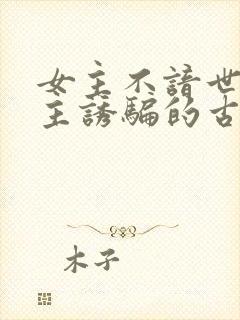 女主不諳世
主誘騙的古
木子